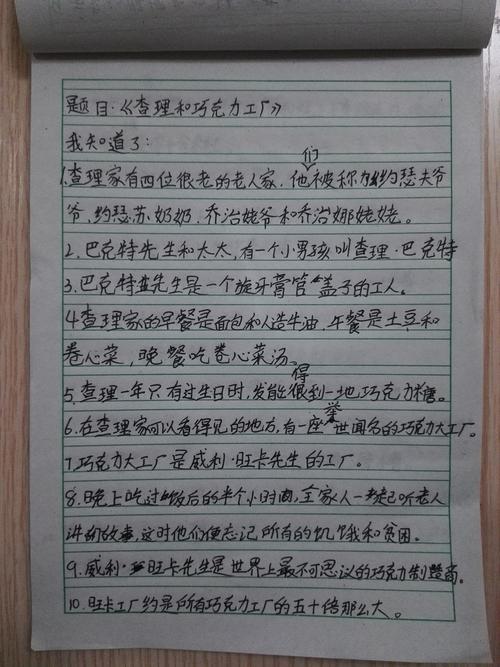 题目:《查理和巧克力工厂》
我知道了:
1.查理家有四位很老的老人家,他们被称为约瑟夫爷
爷、约瑟苏奶奶、乔治姥爷和乔治娜姥姥。
2.巴克特先生和太太,有一个小男孩叫查理·巴克特
3.巴克特先生是一个旋牙膏管盖子的工人。
4查理家的早餐是面包和人造牛油,午餐是土豆和
卷心菜,晚餐吃卷心菜汤。
5.查理一年只有过生日时,才能得到一地巧克力糖。
6.在查理家可以看得见的地方,有一座举世闻名的巧克力大工厂。
7.巧克力大工厂是威利·旺卡先生的工厂。
8.晚上吃过饭后的半个小时内,全家人一起听老人
讲的故事,这时他们便忘记所有的饥饿和贫困。
9.威利·旺卡先生是世界上最不可思议的巧克力制造商。
10.旺卡工厂约是所有巧克力工厂的五十倍那么大。